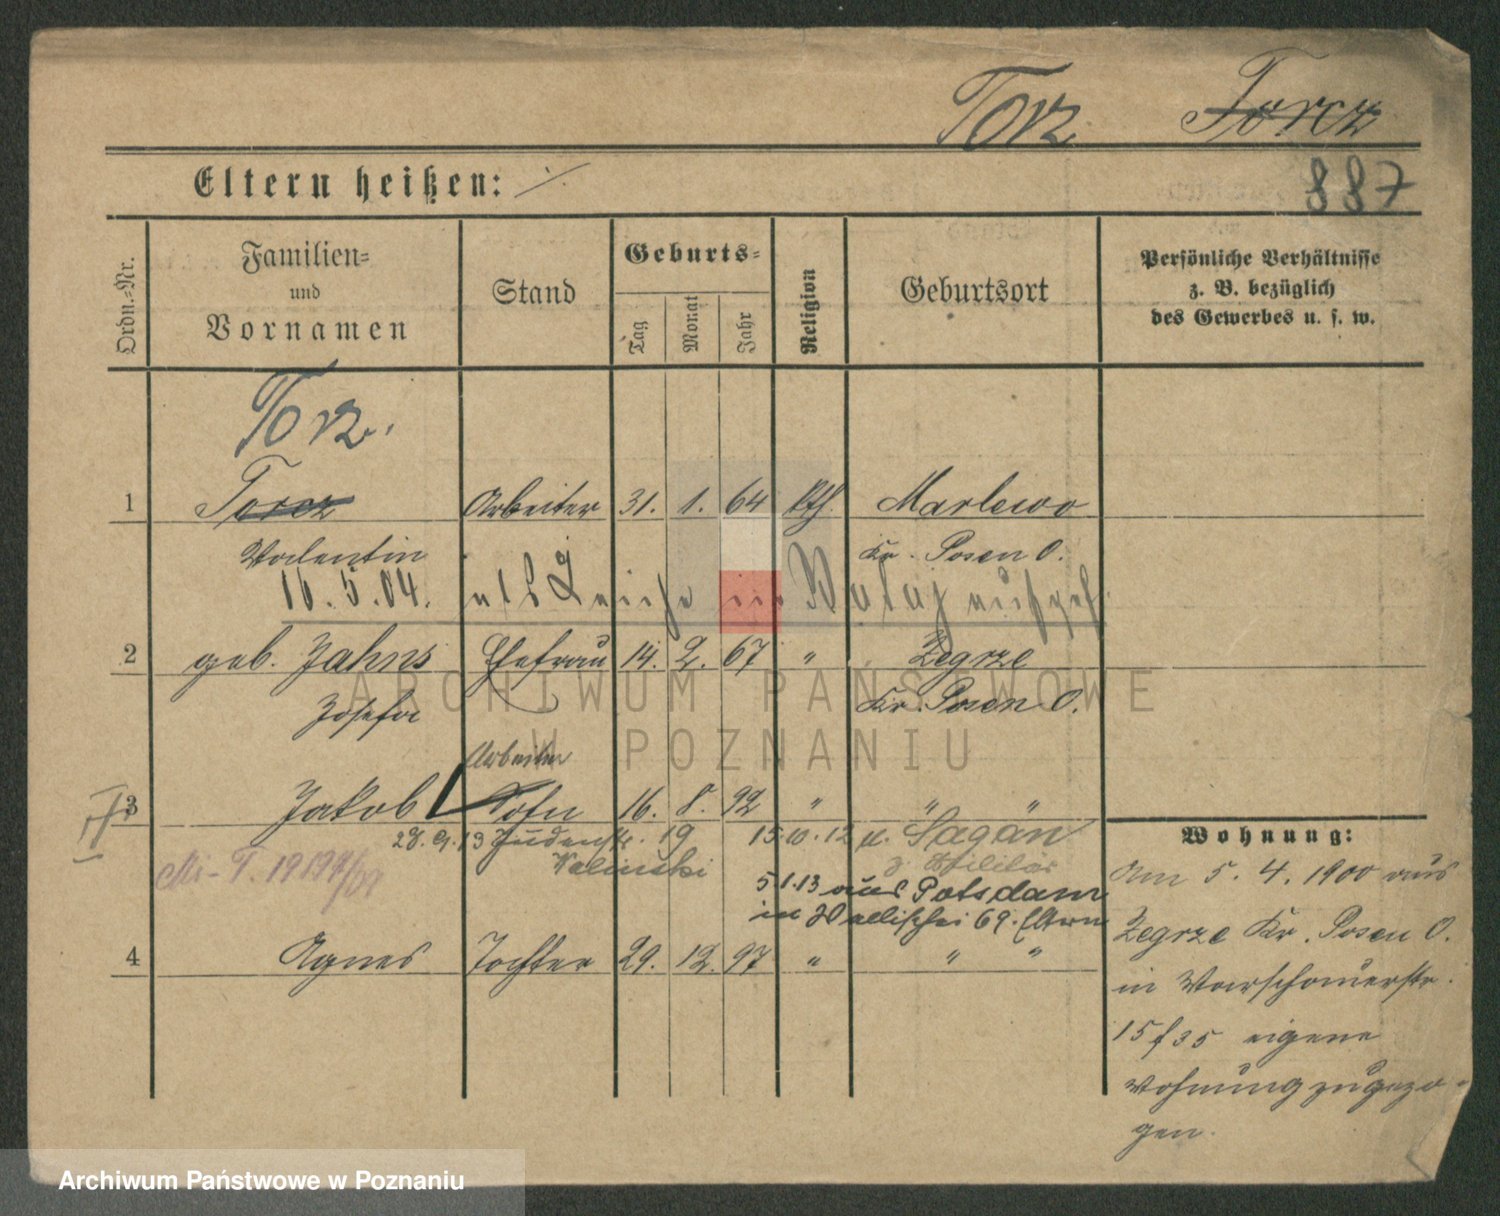 Torz Torcz
887
Eltern heißen: ./.
Ordn.-Nr.
Familien-
und
Vornamen
Stand
Geburts-
Tag
Monat
Jahr
Religion
Geburtsort
Persönliche Verhältnisse
z. B. bezüglich
des Gewerbes u. s. w.
Torz.
1 Torcz Arbeiter 31. 1. 64 kth. Marlewo
Valentin Kr. Posen O.
16.5.04. als Leiche in Wolaj aufgef.
2 geb. Jahns Ehefrau 14. 2. 67 " Zegrze
Josefa Kr. Posen O.
Arbeiter
3 Jakob Sohn 16. 8. 92 " " "
28.9.13 Judenstr. 19 15.10.12 n. Sagan
Kalinski z. Militär
5.1.13 aus Potsdam
in Wallischei 69. Eltern
4 Agnes Tochter 29. 12. 97 " " "
Wohnung:
Am 5. 4. 1900 aus
Zegrze Kr. Posen O.
in Warschauerstr.
15/35 eigene
Wohnung zugezo-
gen.
ARCHIWUM PAŃSTWOWE
W POZNANIU
Archiwum Państwowe w Poznaniu